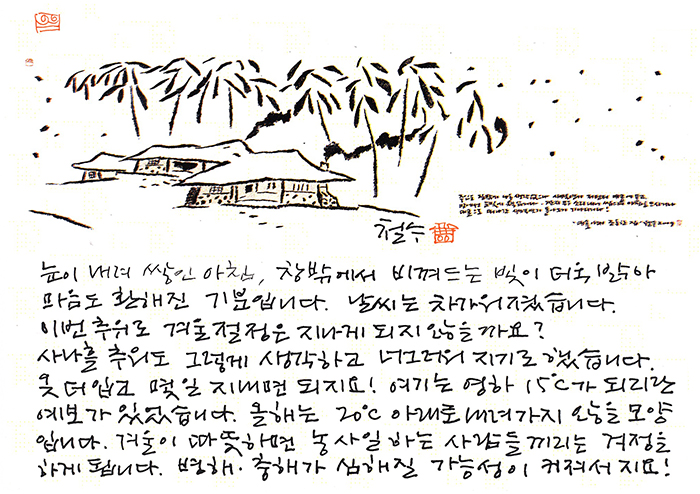 철수
눈이 내려 쌓인 아침, 창밖에서 비껴드는 빛이 더욱 밝아
마음도 환해진 기분입니다. 날씨는 차가워졌습니다.
이번 추위로 겨울절정은 지나게 되지 않을까요?
사나흘 추위도 그렇게 생각하고 너그러워지기로 했습니다.
옷 더 입고 몇일 지내면 되지요! 여기는 영하 15℃가 되리란
예보가 있었습니다. 올해는 20℃ 아래로 내려가지 않을 모양
입니다. 겨울이 따뜻하면 농사일 하는 사람들끼리는 걱정을
하게 됩니다. 병해·충해가 심해질 가능성이 커져서지요!